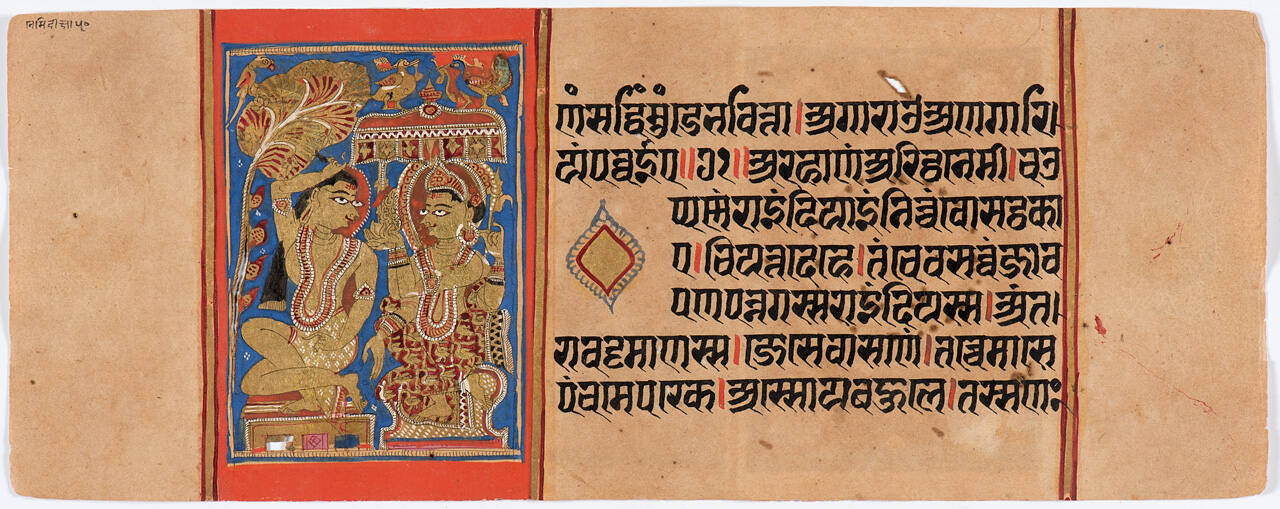 नेमिदीक्षा ५०
णंसद्धिंमुंडेभवित्ता।अगाराउअणगारि
यंपव्वईए॥७१॥अरहाणंअरिट्ठनेमी।चउ
पन्नंराइंदियाइंनिच्चंवोसट्ठका
ए।चियत्तदेहे।तंचेवसव्वंजाव
पणपन्नगस्सराइंदियस्स।अंत
रावट्टमाणस्स।जेसेवासाणं।तच्चेमासे
पंचमेपरके।आस्सोयबहुले।तस्सणं